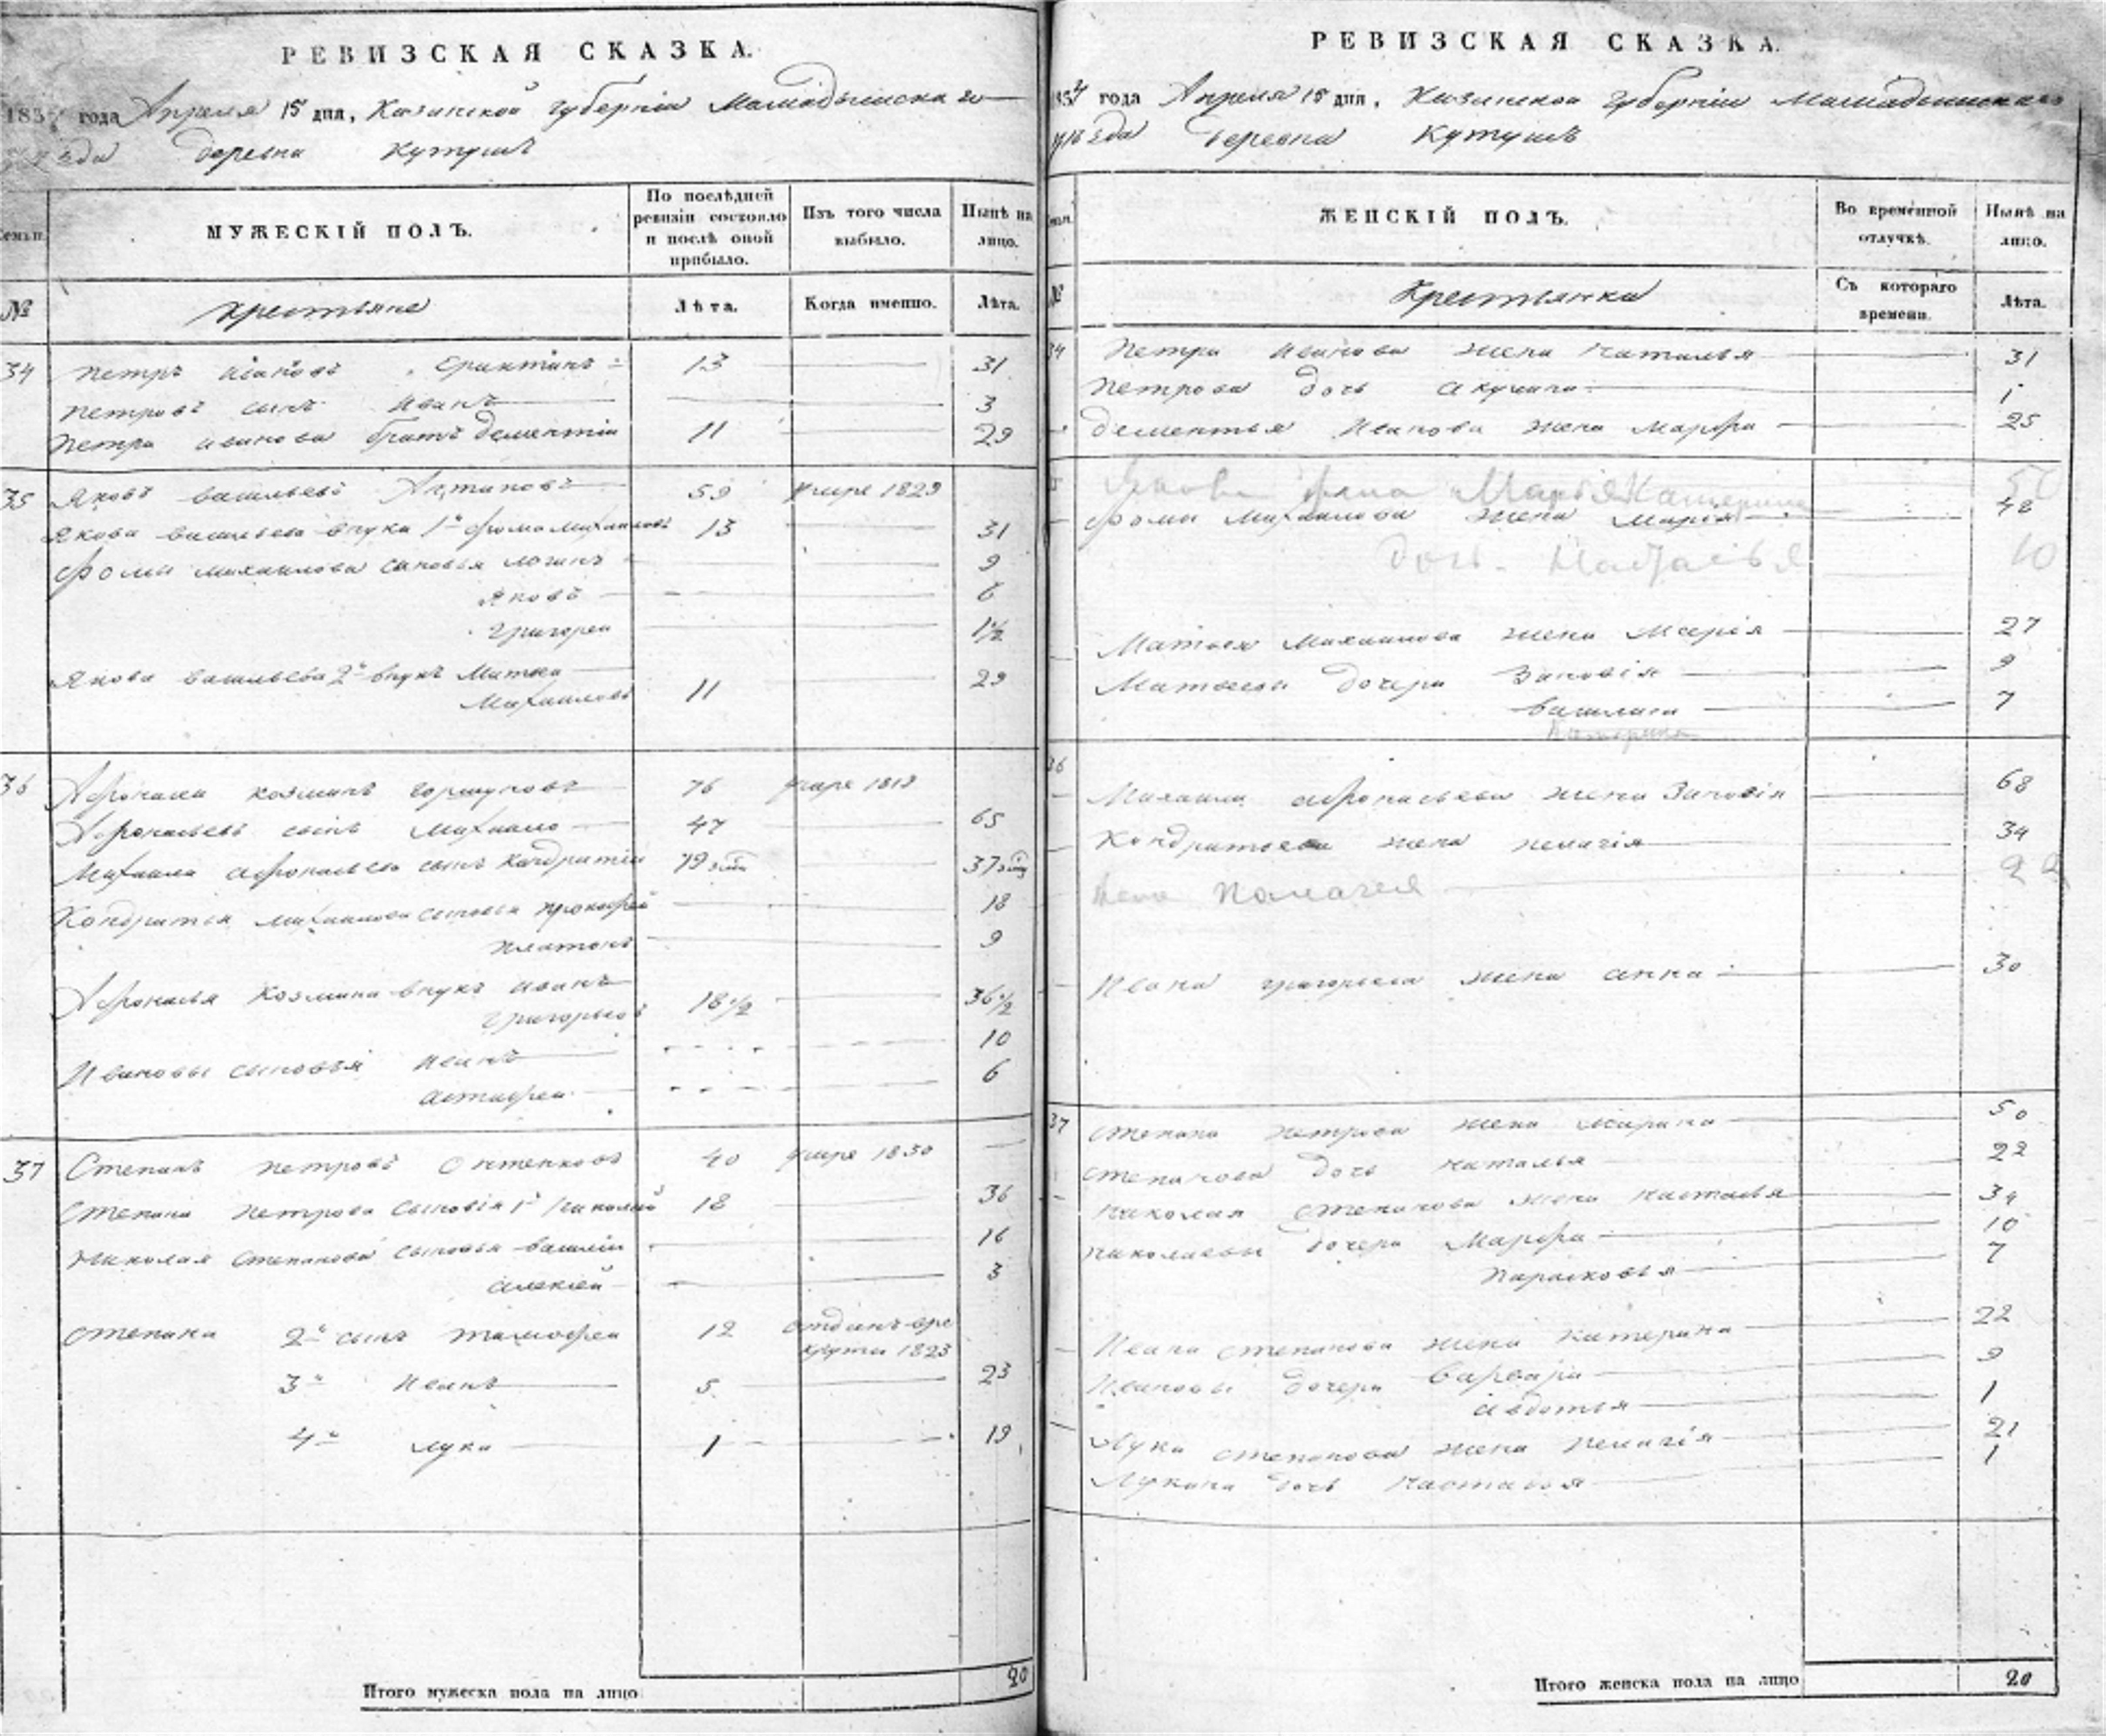 РЕВИЗСКАЯ СКАЗКА.
183 года Апреля 15 дня, Казанской губерніи Мамадышскаго
уѣзда деревни Кутушъ
Семьи. МУЖЕСКІЙ ПОЛЪ. По послѣдней ревизіи состояло и послѣ оной прибыло. Изъ того числа выбыло. Нынѣ на лицо.
№ Крестьяне Лѣта. Когда именно. Лѣта.
34 Петръ Ивановъ 13 31
Петровъ сынъ Иванъ 3
Петра Иванова братъ Дементіи 11 29
35 Яковъ Васильевъ Антиповъ 59 умре 1829
Якова Васильева внуки 1й Фома Михаиловъ 13 31
Фомы Михаилова сыновья Логинъ 9
Яковъ 6
Григореи 1½
Якова Васильева 2й внукъ Матвеи 29
Михаиловъ 11
36 Афонасеи Козминъ Горшуновъ 76 умре 1819
Афонасьевъ сынъ Михаило 47 65
Михаила Афонасьева сынъ Кондратіи 19 37
Кондратья Михаилова сыновья Прокофеи 18
Платонъ 9
Афонасья Козмина внукъ Иванъ
Григорьевъ 18½ 36½
Ивановы сыновья Иванъ 10
Астафеи 6
37 Степанъ Петровъ 40 умре 1830
Степана Петрова сыновья 1й Николай 18 36
Николая Степанова сыновья Василіи 16
Алексѣй 3
Степана 2й сынъ Тимофеи 12 отданъ в рекруты 1823
3й Иванъ 5 23
4й Лука 1 19
Итого мужеска пола на лицо 20
РЕВИЗСКАЯ СКАЗКА.
1834 года Апреля 15 дня, Казанской губерніи Мамадышскаго
уѣзда деревни Кутушъ
Семьи. ЖЕНСКІЙ ПОЛЪ. Во временной отлучкѣ. Нынѣ на лицо.
№ Крестьянки Съ котораго времени. Лѣта.
34 Петра Иванова жена Наталья 31
Петрова дочь Акулина 1
Дементья Иванова жена Марфа 25
35 Якова жена Марья Катерина 50
Фомы Михаилова жена Марія 42
дочь Настасья 10
Матвея Михаилова жена Марія 27
Матвеевы дочери Зиновія 9
Василиса 7
Катерина
36 Михаила Афонасьева жена Зиновія 68
Кондратьева жена Пелагія 34
жена Палагея 22
Ивана Григорьева жена Анна 30
37 Степана Петрова жена Марина 50
Степанова дочь Наталья 22
Николая Степанова жена Настасья 34
Николаевы дочери Марфа 10
Парасковья 7
Ивана Степанова жена Катерина 22
Ивановы дочери Варвара 9
Авдотья 1
Луки Степанова жена Пелагія 21
Лукина дочь Настасья 1
Итого женска пола на лицо 20